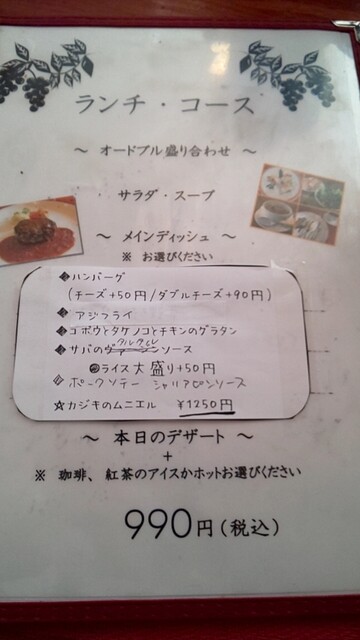 ランチ・コース
～ オードブル盛り合わせ ～
サラダ・スープ
～ メインディッシュ ～
※ お選びください
◆ハンバーグ
(チーズ+50円/ダブルチーズ+90円)
◆アジフライ
◆ゴボウとタケノコとチキンのグラタン
◆サバの ソース
ライス大盛り+50円
ポークソテー シャリアピンソース
☆カジキのムニエル ¥1250円
～ 本日のデザート ～
+
※ 珈琲、紅茶のアイスかホットお選びください
990円(税込)